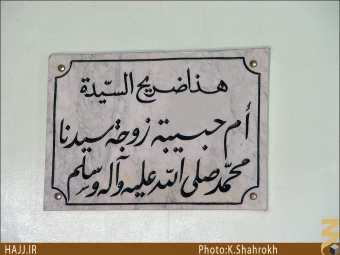 هذا ضريح السيّدة
أم حبيبة زوجة سيدنا
محمّد صلى الله عليه وآله وسلم
HAJJ.IR
Photo:K.Shahrokh